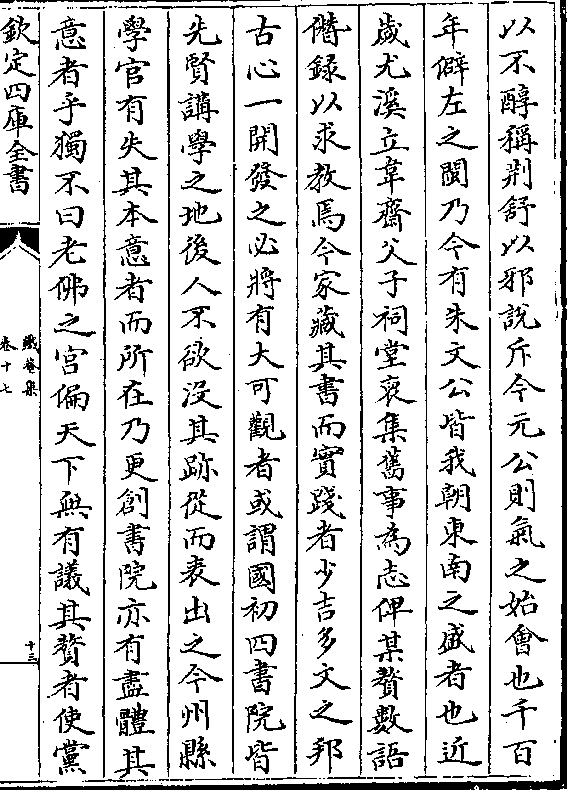 以不醇稱荆舒以邪說斥今元公則氣之始會也千百
年僻左之閩乃今有朱文公皆我朝東南之盛者也近
歲尤溪立韋齋父子祠堂裒集舊事為志俾某贅數語
僭録以求教焉今家藏其書而實踐者少吉多文之邦
古心一開發之必將有大可觀者或謂國初四書院皆
先賢講學之地後人不欲沒其跡從而表出之今州縣
學官有失其本意者而所在乃更創書院亦有盡體其
意者乎獨不曰老佛之宫徧天下無有議其贅者使黨
欽定四庫全書
鐵菴集
卷十七
十三